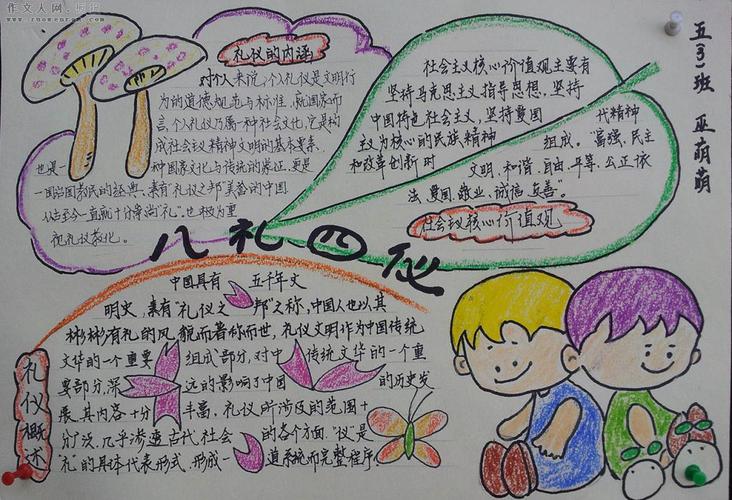 作文人网
五(3)班 巫萌萌
礼仪的内涵
对个人来说,个人礼仪是文明行
为的道德规范与标准,就国家而
言,个人礼仪乃属一种社会文化,它是构
成社会议精神文明的基本要素.
也是一 种国家文化与传统的象征,更是
一国治国教民的经典,素有"礼仪之邦"美誉的中国
从古至今一直就十分崇尚"礼",也极为重
视礼仪教化。
社会主义核心价值观主要有
坚持马克思主义指导思想、坚持
中国特色社会主义,坚持爱国
主义为核心的民族精神
和改革创新时
代精神
组成。"富强、民主
文明、和谐、自由、平等、公正依
法、爱国、敬业、诚信、友善。
社会议核心价值观
八礼四仪
礼仪概述
中国具有 五千年文
明史,素有"礼仪之 邦"之称,中国人也以其
彬彬有礼的风 貌而著称而世,礼仪文明作为中国传统
文华的一个重要 组式部分,对中 传统文华的一个重
要部分,深 远的影响了中国 的历史发
展,其内容十分 丰高,礼仪所涉及的范围十
分广泛,几乎渗透古代社会 的各个方面."仪"是
"礼"的具体代表形式,形成一 道系统而完整程序.